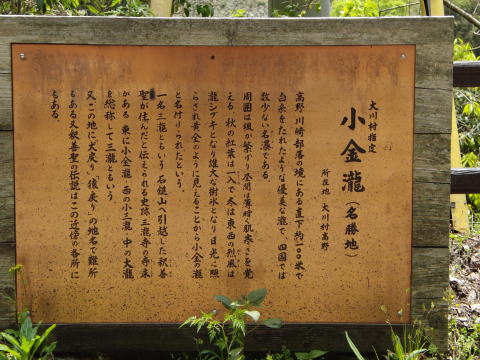 大川村指定
小金瀧（名勝地）
所在地 大川村高野
高野、川崎部落の境にある直下約一〇〇米で
白糸をたれたような優美な瀧で、四国では
数少ない名瀑である。
周囲は椴が繁り昼間は薄暗く肌寒さを覚
える 秋の紅葉は一入で冬は東西の烈風は
瀧シブキとなり雄大な樹氷となり日光に照
らされ黄金のように見えることから小金の瀧
と名付けられたという。
一名三瀧ともいう 石鎚山へ引越した釈善
聖が住んだと伝えられる史跡三瀧寺の寺床
がある 東に小金瀧、西の小三瀧、中の大瀧
を総称して三瀧ともいう。
又この地に犬戻り（猿戻り）の地名で難所
もある又釈善聖の伝説はこの近傍の各所に
もある。